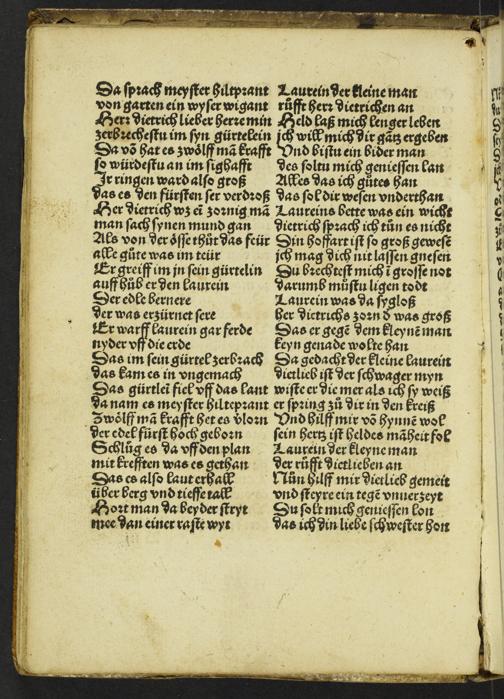 Da sprach meyster hiltprant
von garten ein wyser wigant
Herr dietrich lieber herre min
zerbrechestu im syn gürtelein
Da vō hat es zwölff mā krafft
so würdestu an im sighafft
Ir ringen ward also groß
das es den fürsten ser verdroß
Her dietrich wz eī zornig mā
man sach synen mund gan
Als von der össe thůt das feür
alle güte was im teür
Er greiff im jn sein gürtelin
auff hůb er den laurein
Der edle bernere
der was erzürnet sere
Er warff laurein gar ferde
nyder vff die erde
Das im sein gürtel zerbrach
das kam es in vngemach
Das gürtlei fiel vff das lant
da nam es meyster hilteprant
Zwölff mā krafft het es vlorn
der edel fürst hoch geborn
Schlůg es da vff den plan
mit krefften was es gethan
Das es also laut erhall
über berg vnd tieffe tall
Hort man da beyder stryt
mee dan einer raste wyt
Laurein der kleine man
růfft herr dietrichen an
Held laß mich lenger leben
jch will mich dir gātz ergeben
Vnd bistu ein bider man
des soltu mich geniessen lan
Alles das ich gůtes han
das sol dir wesen vnderthan
Laureins bette was ein wicht
dietrich sprach ich tůn es nicht
Din hoffart ist so groß gewesē
jch mag dich nit lassen gnesen
Du brechtest mich ī grosse not
darumb můstu ligen todt
Laurein was da sygloß
her dietrichs zorn d was groß
Das er gegē dem kleynē man
keyn genade wolte han
Da gedacht der kleine laurein
dietlieb ist der schwager myn
wiste er die mer als ich sy weiß
er spring zů dir in den kreiß
Vnd hilff mir vō hynnē wol
sein hertz ist heldes māheit fol
Laurein der kleyne man
der růfft dietlieben an
Nůn hilff mir dietlieb gemeit
vnd steyre ein tegē vnuerzeyt
Du solt mich geniessen lon
das ich din liebe schwester hon